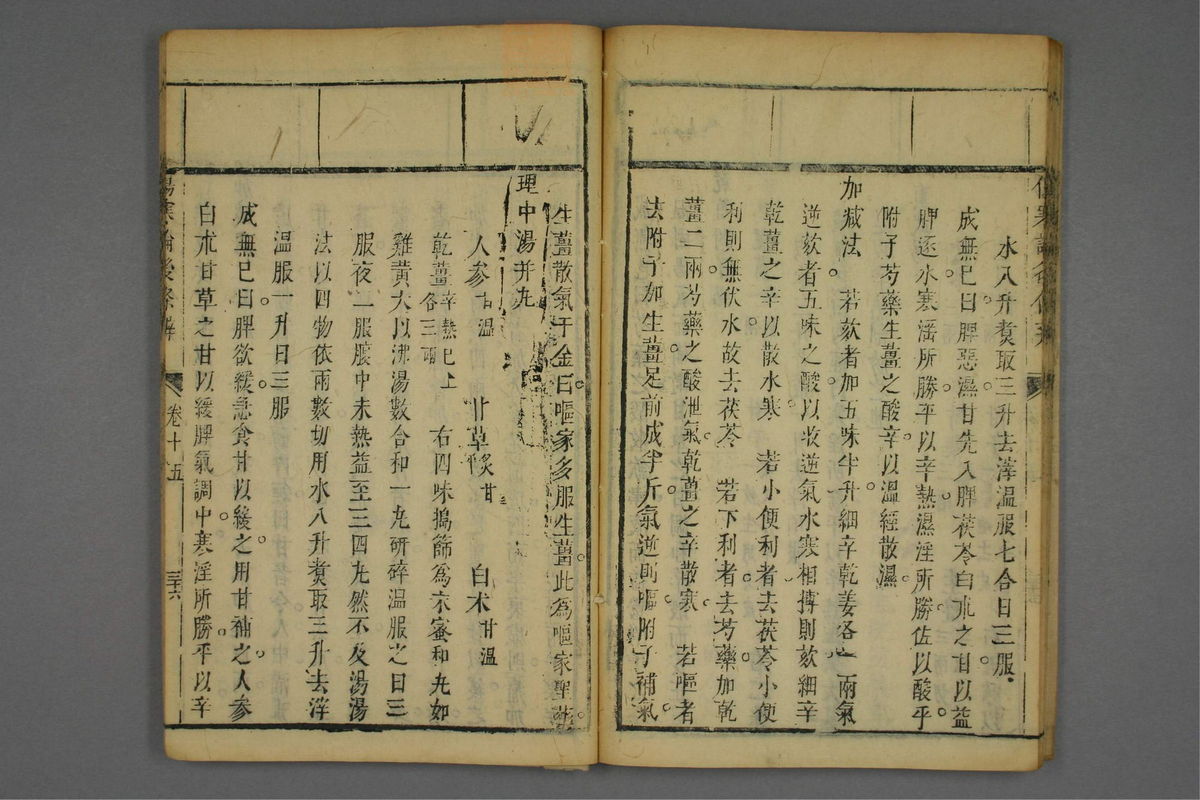 水八升煑取三升去滓溫服七合日三服
成無巳曰脾惡濕甘先入脾茯苓白朮之甘以益
脾逐水寒濕所勝平以辛熱濕淫所勝佐以酸平
附子芍藥生薑之酸辛以溫經散濕
加减法 若欬者加五味半升細辛乾姜各一兩氣
逆欬者五味之酸以收逆氣水寒相搏則欬細辛
乾薑之辛以散水寒 若小便利者去茯苓小便
利則無伏水故去茯苓 若下利者去芍藥加乾
薑二兩芍藥之酸泄氣乾薑之辛散寒 若嘔者
去附子加生薑足前成半斤氣逆則嘔附子補氣
生薑散氣千金曰嘔家多服生薑此為嘔家聖藥
理中湯并丸
人參甘溫 甘草炙甘 白朮甘溫
乾薑辛熱巳上各三兩 右四味搗篩爲末蜜和丸如
雞黃大以沸湯數合和一丸研碎溫服之日三
服夜一服腹中未熱益至三四丸然不及湯湯
法以四物依兩數切用水八升煑取三升去滓
溫服一升日三服
成無巳曰脾欲緩急食甘以緩之用甘補之人參
白朮甘草之甘以緩脾氣調中寒淫所勝平以辛
傷寒論後條辨 卷十五 三十六